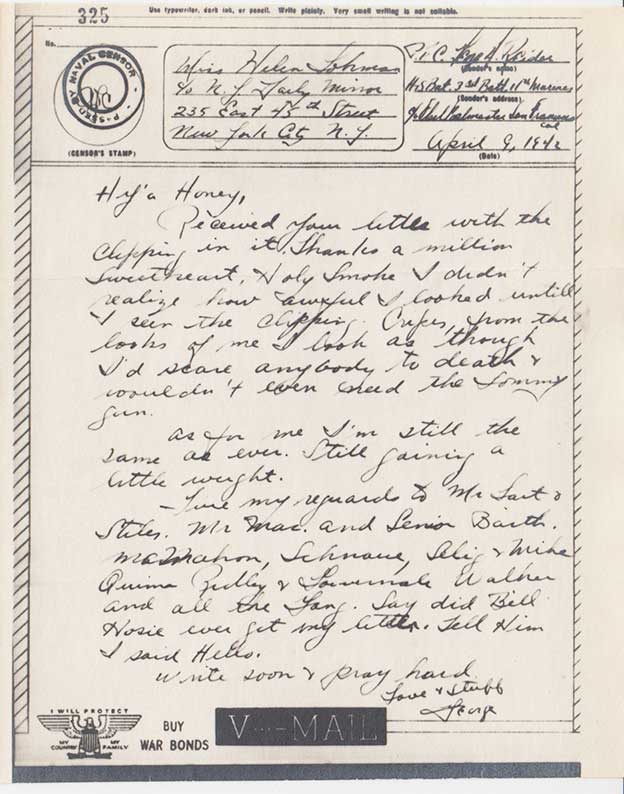 325
Use typewriter, dark ink, or pencil. Write plainly. Very small writing is not suitable.
No.
PASSED BY NAVAL CENSOR
(CENSOR'S STAMP)
Miss Helen
c/o N.Y. Daily Mirror
235 East 45th Street
New York City N.Y.
P.F.C.
(Sender's name)
H+S Bat. 3rd Batt. 11th Marines
(Sender's address)
c/o Postmaster San Francisco
Cal
April 9, 1942
(Date)
Hy'a Honey,
Received your letter with the
clipping in it. Thanks a million
sweetheart. Holy Smoke I didn't
realize how awful I looked untill
I seen the clipping. Cripes, from the
looks of me I look as though
I'd scare anybody to death &
wouldn't even need the Tommy
gun.
As for me I'm still the
same as ever. Still gaining a
little weight.
Give my reguards to Mr &
Stiles. Mr Mac. and Senior Barth.
McMahon, & Mike
Ridley & Walker
and all the Gang. Say did Bill
Hosie ever get my letter. Tell Him
I said Hello.
Write soon & pray hard
Love & Stuff
George
I WILL PROTECT
MY COUNTRY MY FAMILY
BUY
WAR BONDS
V···—MAIL